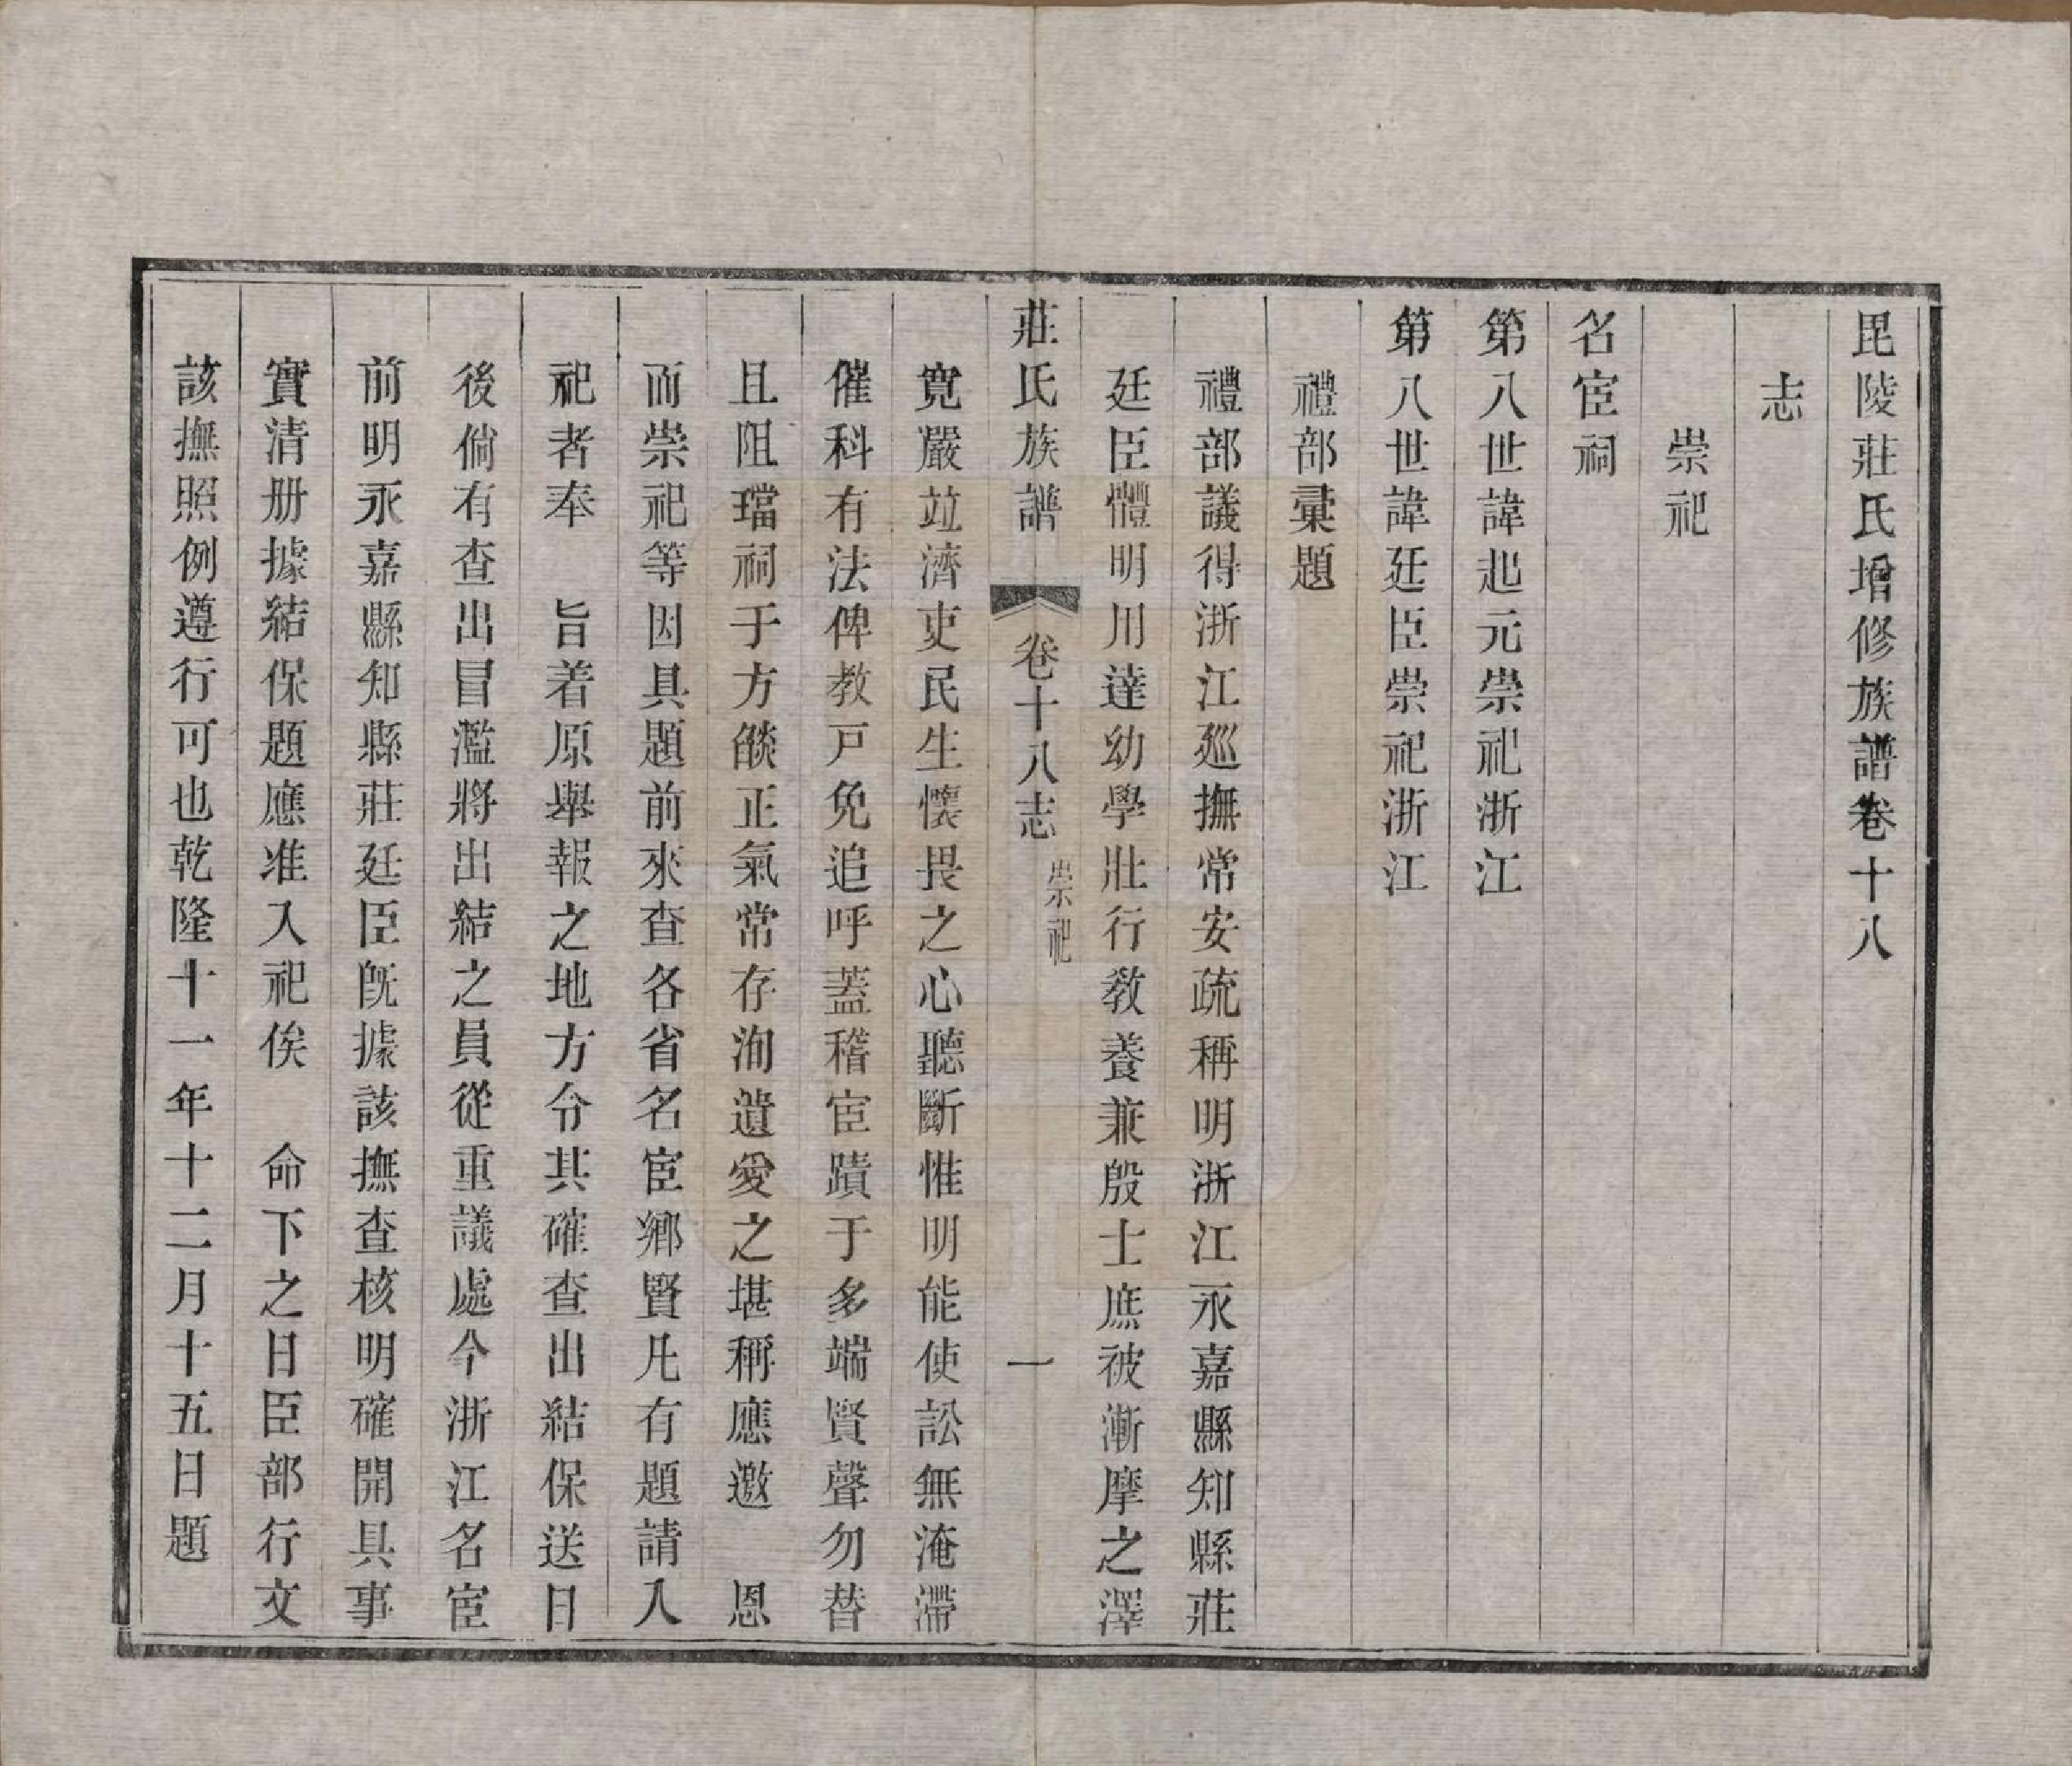 毘陵莊氏增修族譜卷十八
志
崇祀
名宦祠
第八世諱起元崇祀浙江
第八世諱廷臣崇祀浙江
禮部彙題
禮部議得浙江廵撫常安疏稱明浙江永嘉縣知縣莊
廷臣體明用達幼學壯行教養兼殷士庶被漸摩之澤
莊氏族譜 卷十八志 崇祀 一
寛嚴竝濟吏民生懷畏之心聽斷惟明能使訟無淹滯
催科有法俾教戸免追呼蓋稽宦蹟于多端賢聲勿替
且阻璫祠于方燄正氣常存洵遺愛之堪稱應邀 恩
而崇祀等因具題前來查各省名宦鄉賢凡有題請入
祀者奉 旨着原舉報之地方令其確查出結保送日
後倘有查出冒濫將出結之員從重議處今浙江名宦
前明永嘉縣知縣莊廷臣旣據該撫查核明確開具事
實清册據結保題應准入祀俟 命下之日臣部行文
該撫照例遵行可也乾隆十一年十二月十五日題